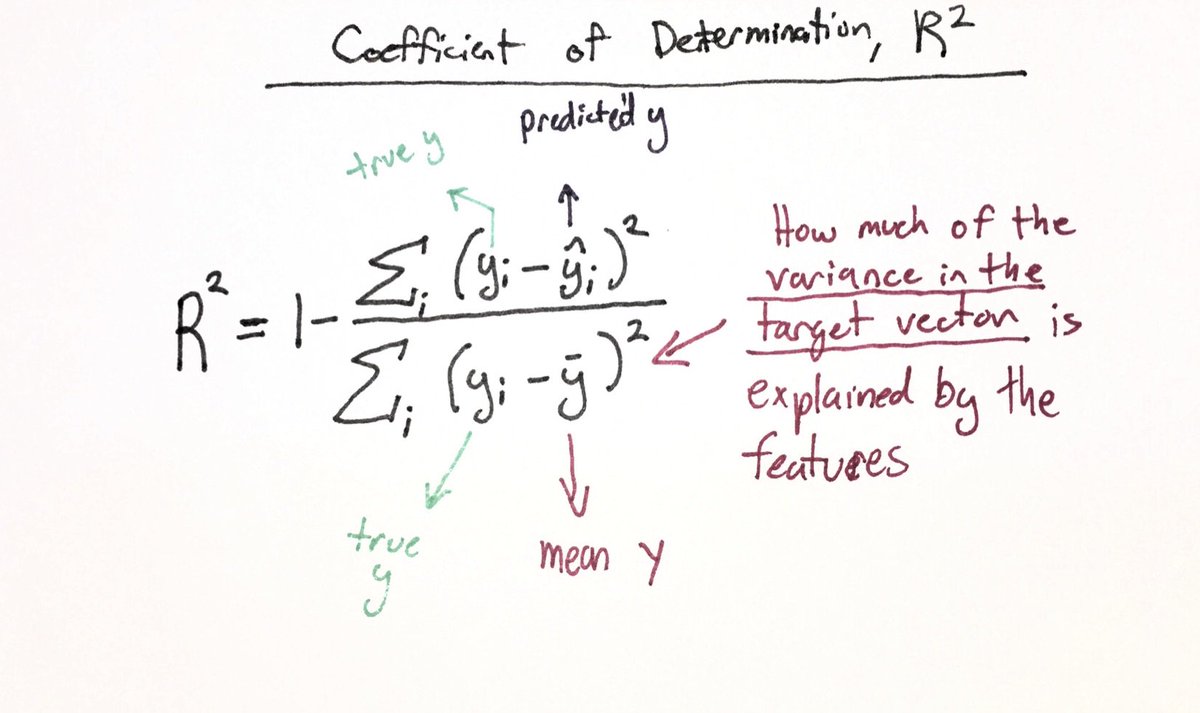 Coefficient of Determination, R²
predicted y
true y
R² = 1 - Σᵢ (yᵢ - ŷᵢ)² / Σᵢ (yᵢ - ȳ)²
How much of the
variance in the
target vector is
explained by the
features
true
y
mean y